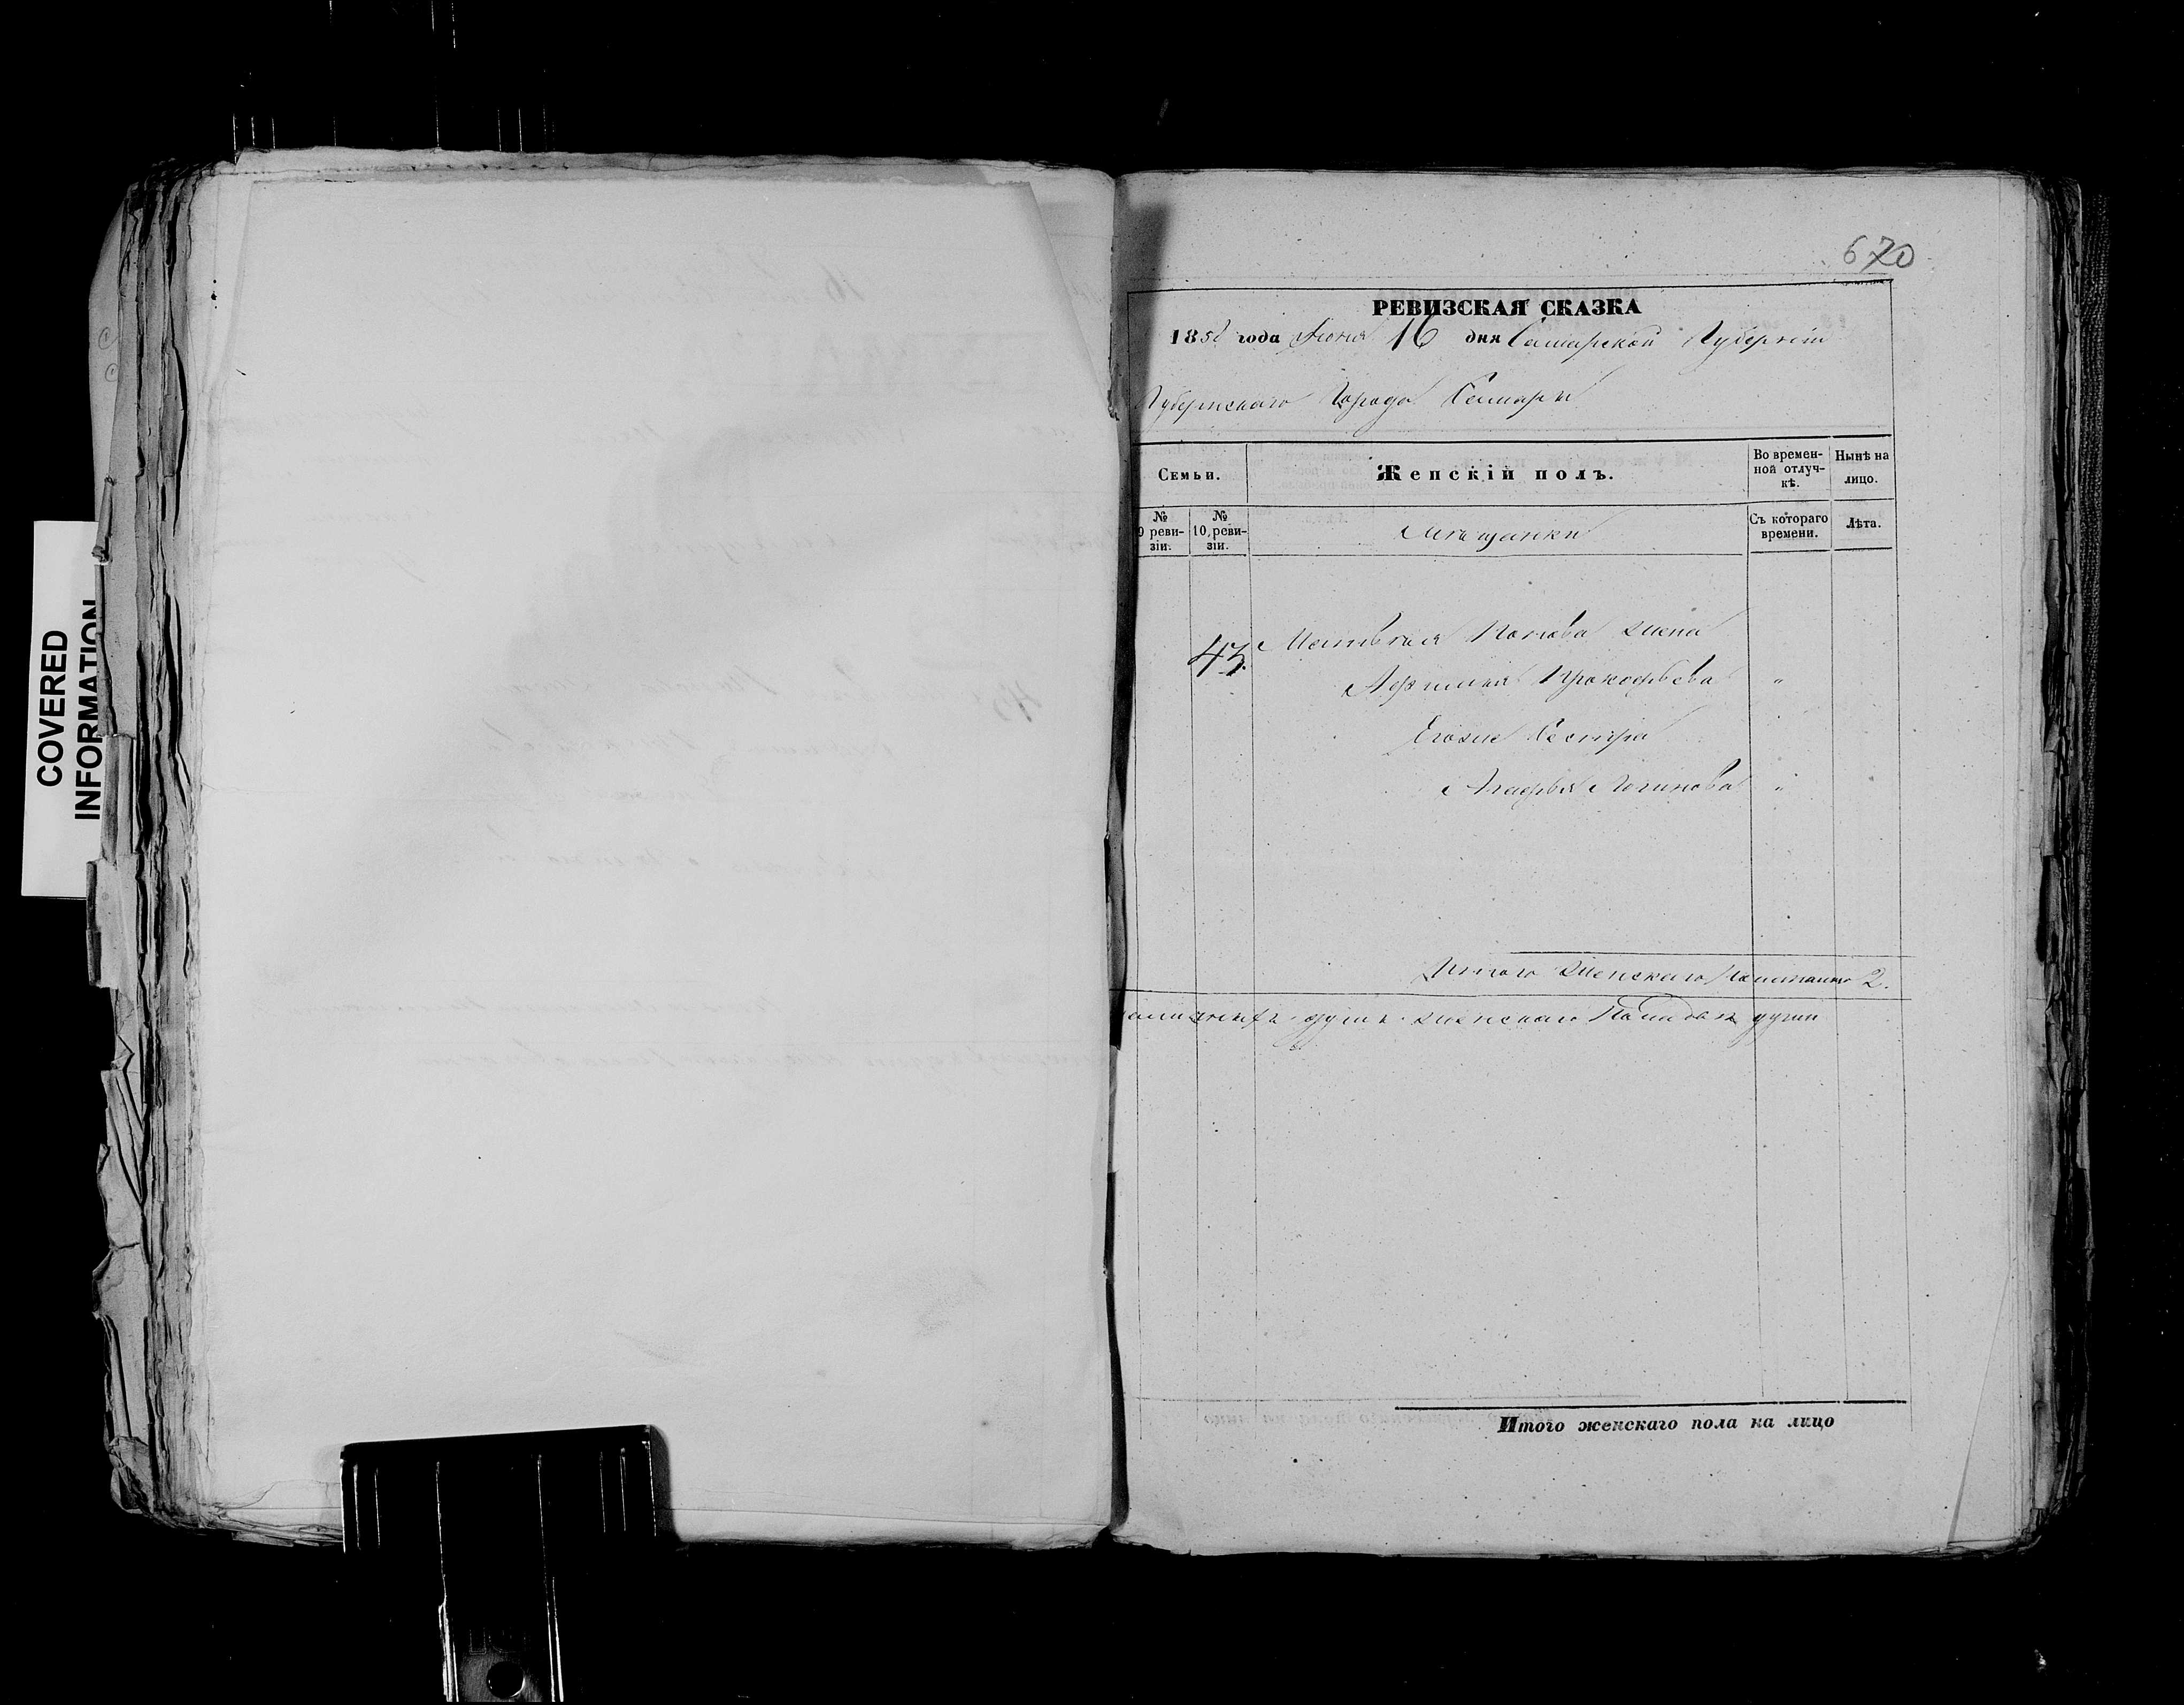 COVERED
INFORMATION
670
РЕВИЗСКАЯ СКАЗКА
1858 года Июня 16 дня Самарской Губерніи
Губернскаго Города Самары
Семьи.
Женскій полъ.
Во времен-
ной отлуч-
кѣ.
Нынѣ на
лицо.
№
9 реви-
зіи.
№
10, реви-
зіи.
Мѣщанки
Съ котораго
времени.
Лѣта.
43. Матвѣя Попова жена
Афимья Прокофьева "
Егоже Сестра
Агафья Логинова "
Итого женскаго пола налицо 2.
наличныхъ душъ женскаго Пола двѣ души
Итого женскаго пола на лицо